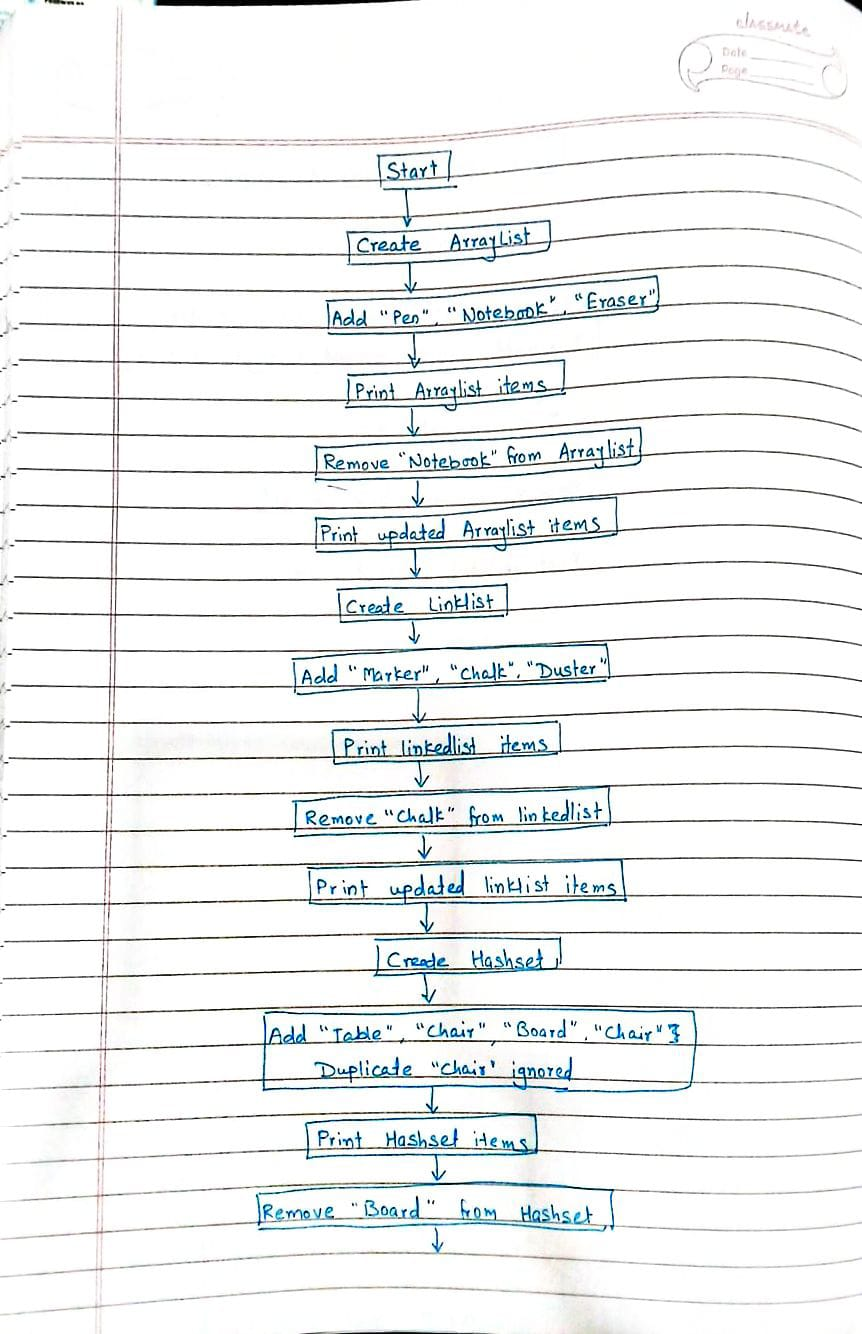 classmate
Date
Page
Start
Create ArrayList
Add "Pen", "Notebook", "Eraser"
Print Arraylist items
Remove "Notebook" from Arraylist
Print updated Arraylist items
Create Linklist
Add "Marker", "Chalk", "Duster"
Print linkedlist items
Remove "Chalk" from linkedlist
Print updated linklist items
Create Hashset
Add "Table", "Chair", "Board", "Chair"}
Duplicate "Chair' ignored
Print Hashset items
Remove "Board" from Hashset